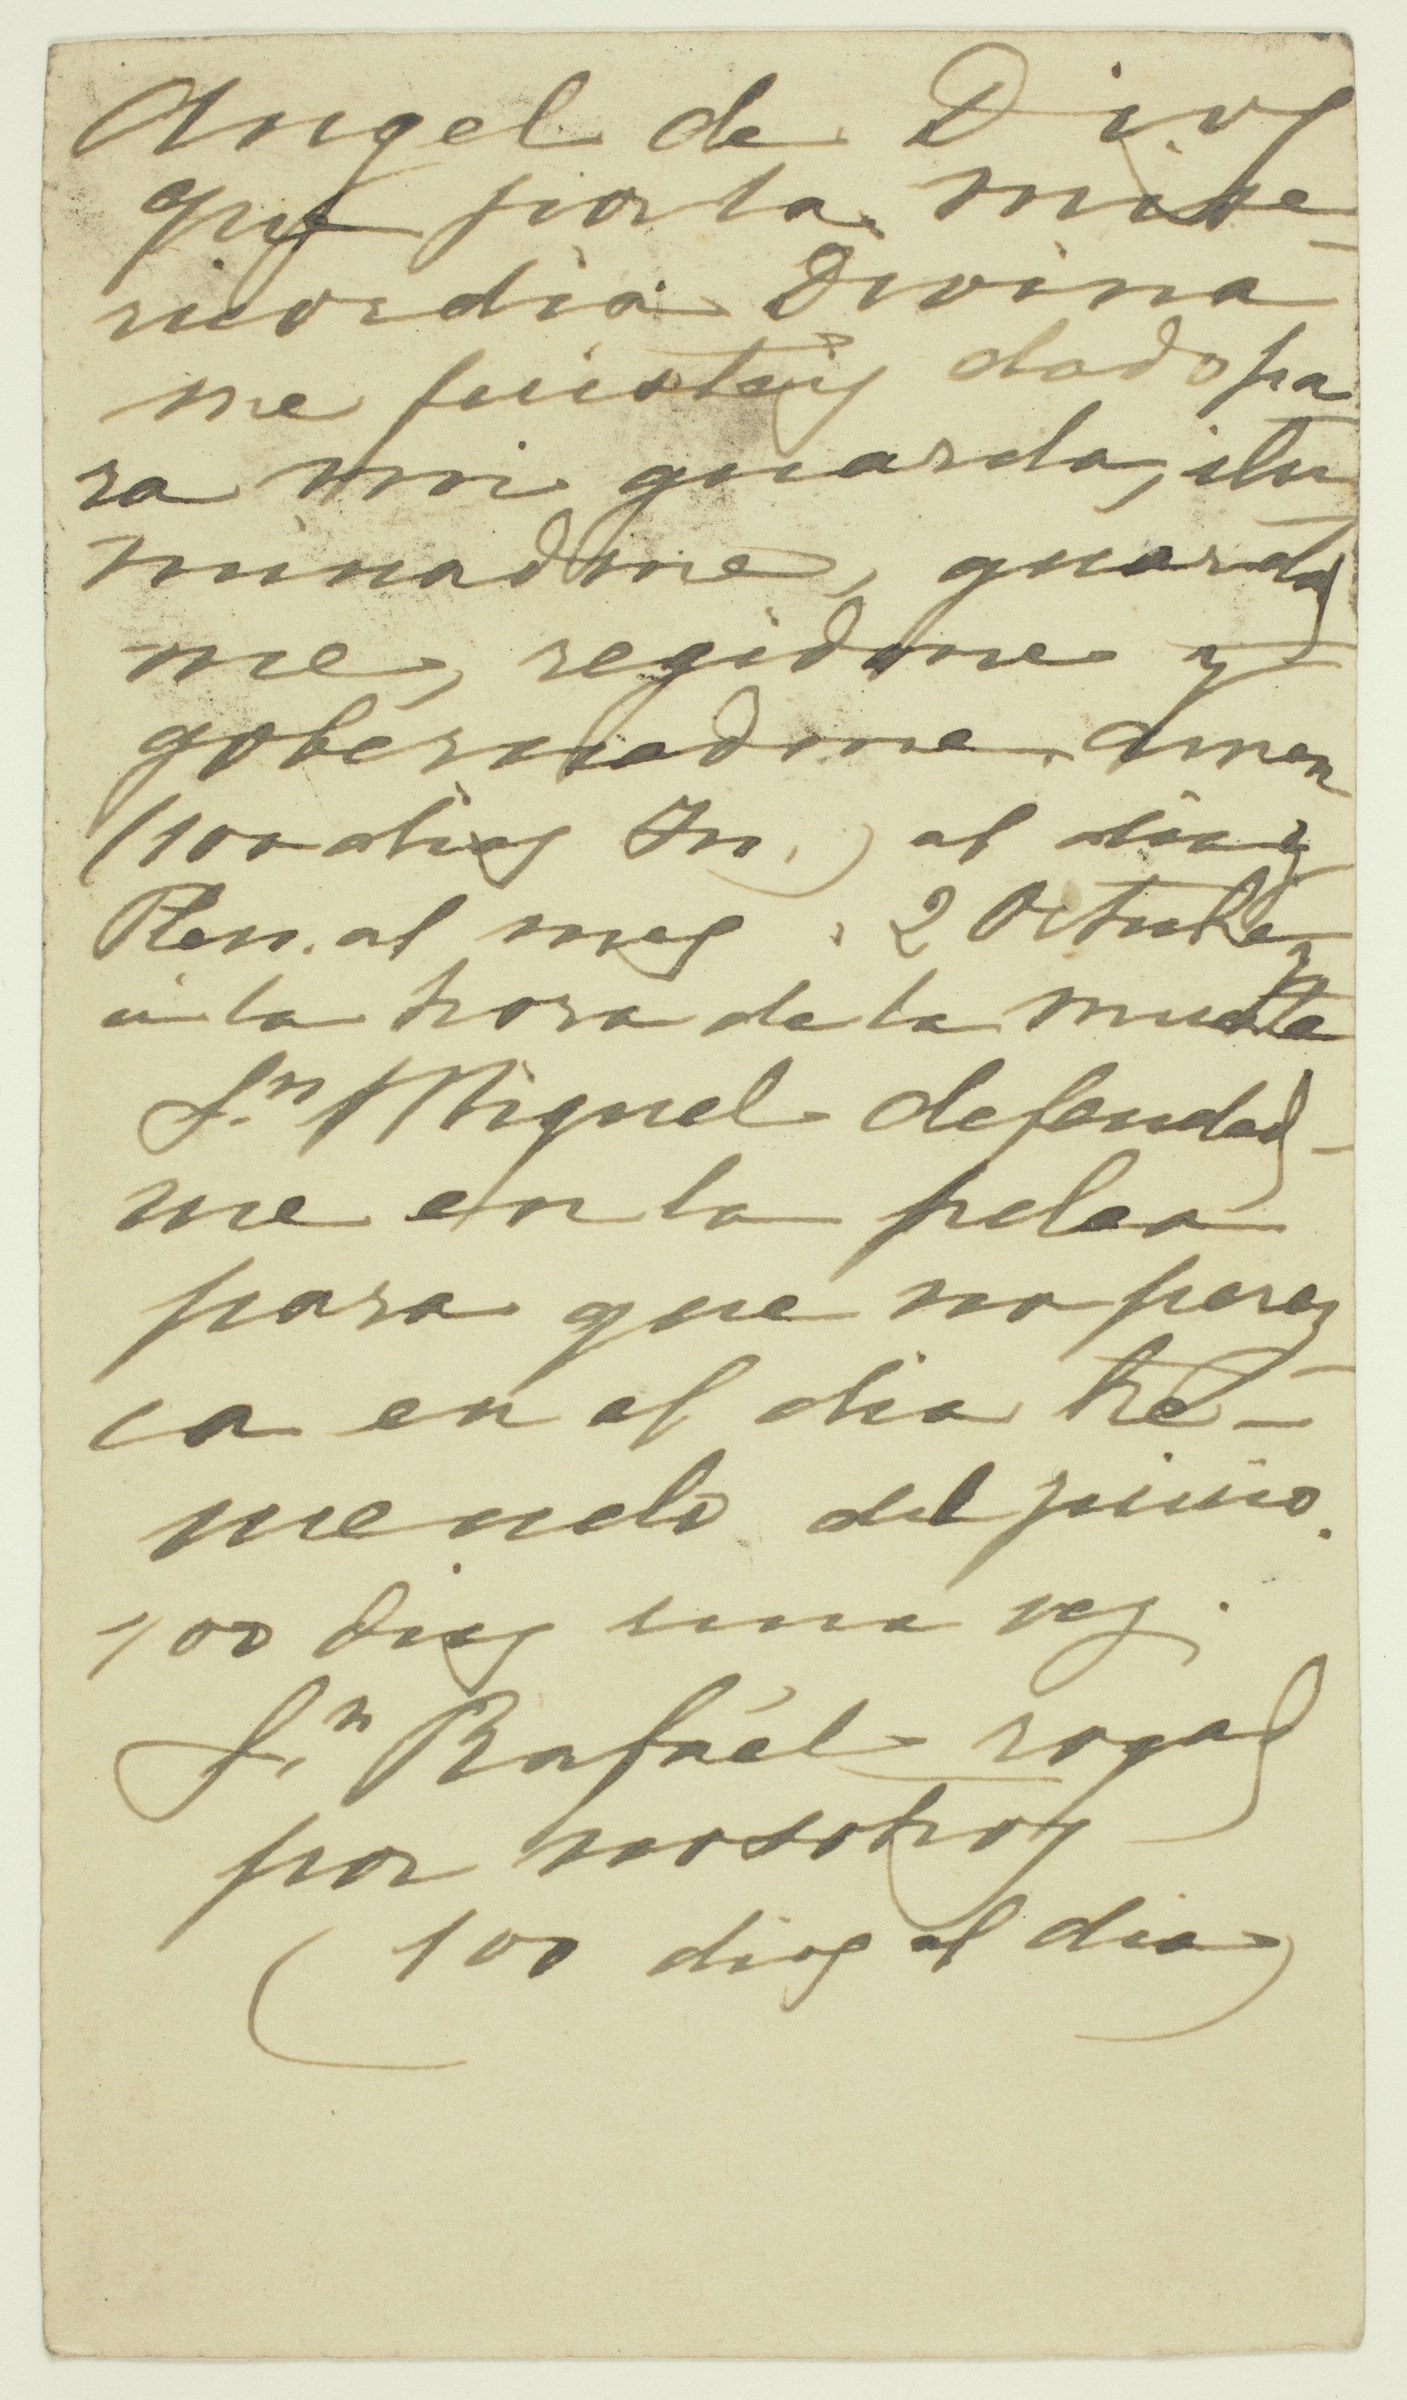 Angel de Dios
que por la mise-
ricordia Divina
me fuisteis dado pa
ra mi guarda, ilu
minadme, guardad
me, regidme y
gobernadme. Amen
(100 dias In.) al dia y
Plen. al mes, 2 Octubre y
á la hora de la muerte
Sn. Miguel defended-
me en la pelea
para que no perez
ca en el dia tre-
mendo del juicio.
100 dias una vez.
Sn. Rafaél rogad
por nosotros
(100 dias al dia)